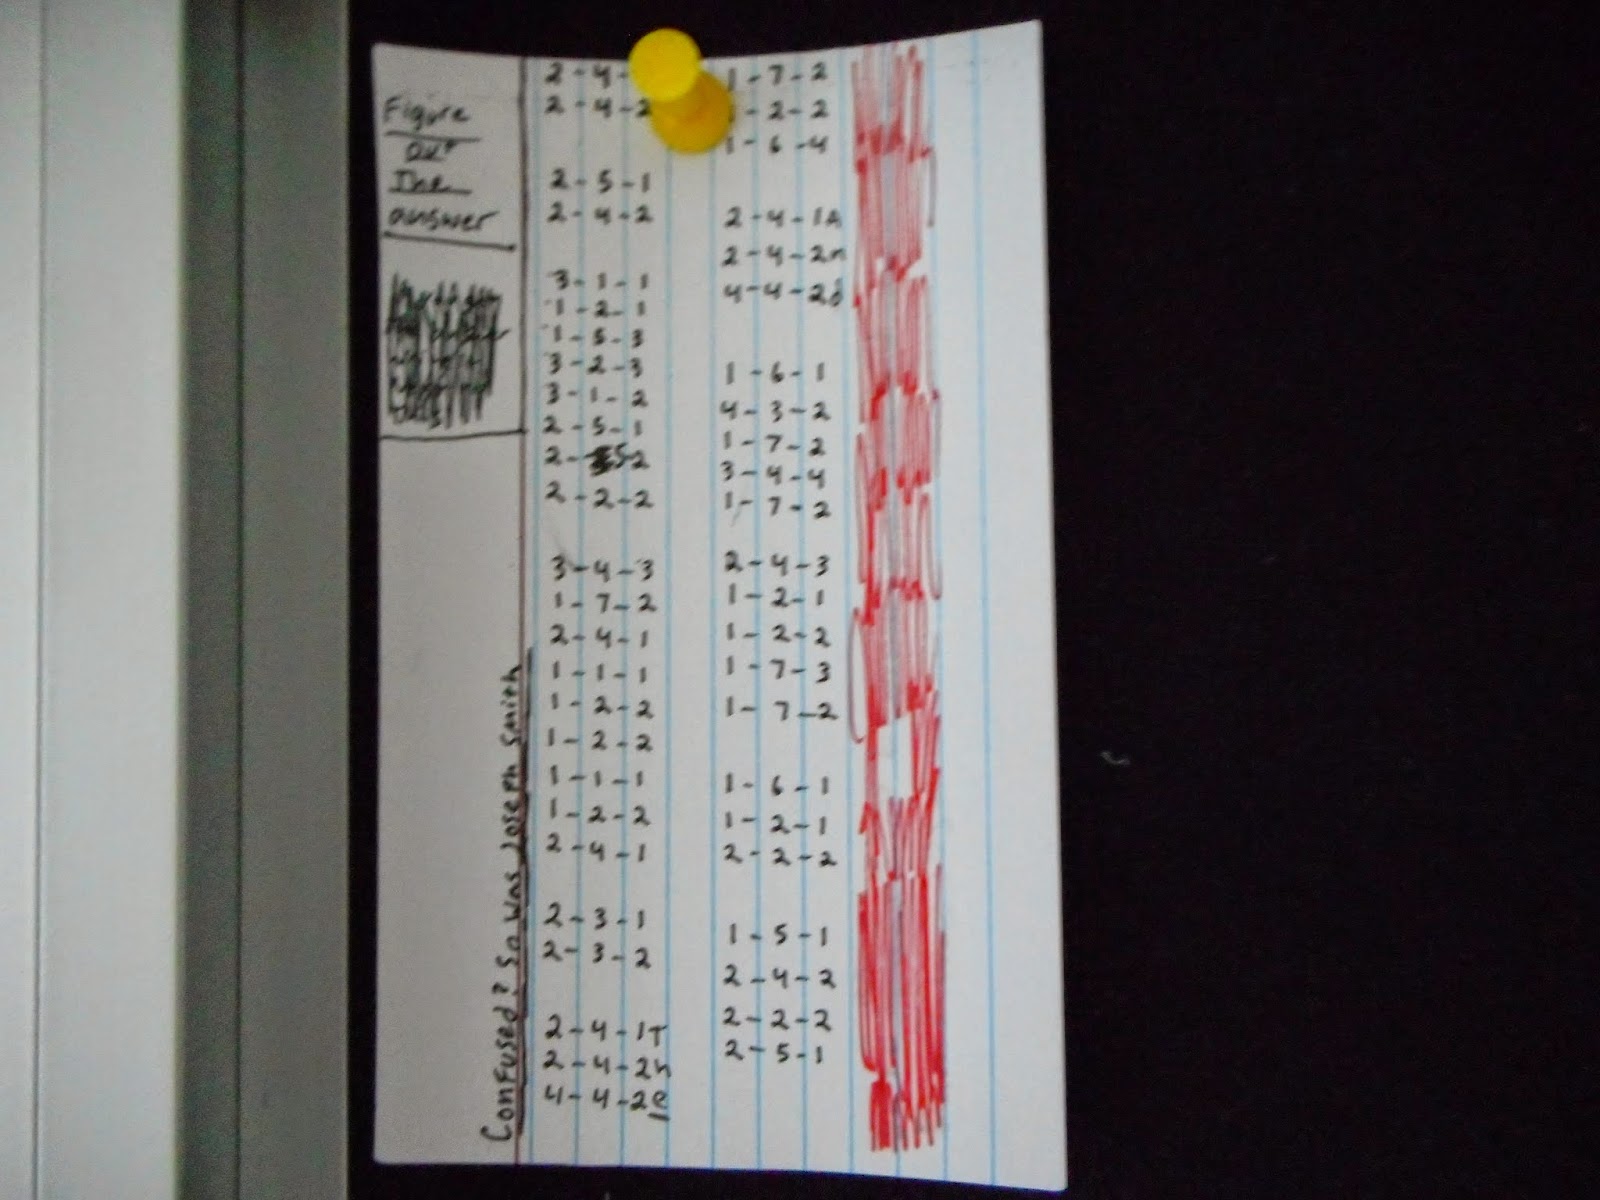 Figure
out
The
answer
Confused? So was Joseph Smith
2-4-
2-4-2
2-5-1
2-4-2
3-1-1
1-2-1
1-5-3
3-2-3
3-1-2
2-5-1
2-52
2-2-2
3-4-3
1-7-2
2-4-1
1-1-1
1-2-2
1-2-2
1-1-1
1-2-2
2-4-1
2-3-1
2-3-2
2-4-1T
2-4-2h
4-4-2e
1-7-2
-2-2
1-6-4
2-4-1A
2-4-2n
4-4-2d
1-6-1
4-3-2
1-7-2
3-4-4
1-7-2
2-4-3
1-2-1
1-2-2
1-7-3
1-7-2
1-6-1
1-2-1
2-2-2
1-5-1
2-4-2
2-2-2
2-5-1